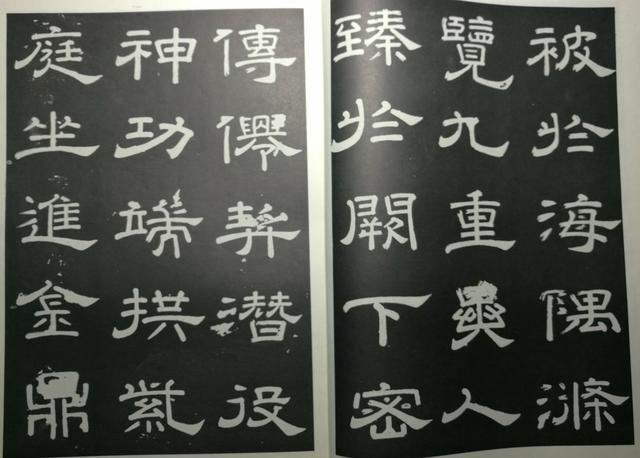 被於海隅滌
覽九重異人
臻於闕下密
傳僊契潛役
神功端拱紫
庭坐進金鼎